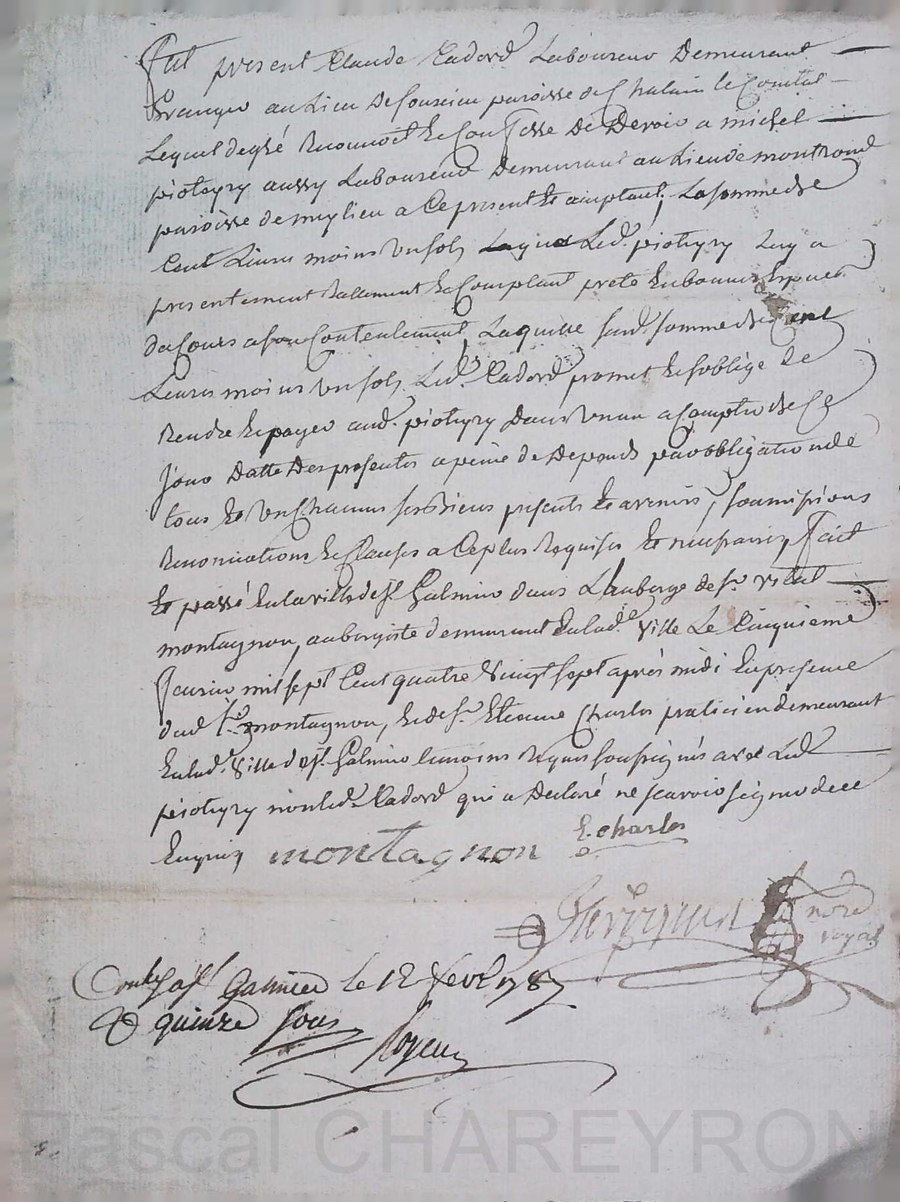 fut present Claude Cadord Laboureur Demeurant
Granger au Lieu De Cousieu paroisse de Chalain le Comtal
Lequel de gré Reconnoit & Confesse de Devoir a michel
pioteyry aussy Laboureur Demeurant au Lieu de montrond
paroisse de meylieu a Ce present & acceptant, La somme de
Cent Livres moins un sols Led. pioteyry Luy a
presentement Rellement & Comptant preté En bonnes Especes
da Cours a son Contentement, Laquelle susd. somme de Cent
Livres moins un sols Led. Cadord promet & s'oblige de
Rendre & payer aud. pioteyry Dans un an a Compter de Ce
Jour Datte Des presentes a peine de Depends par obligation de
tous & un Chacuns ses Biens presents & avenirs, soumissions
Renonciations & Clauses a Ce plus Requises & necessaires, fait
& passé En la ville de st Galmier dans L'auberge de sr vital
montagnon, aubergiste demeurant En lad. Ville Le Cinquieme
fevrier mil sept Cent quatre vingt sept aprés midi En presence
dud sr. montagnon, & de sr. Etienne Charles praticien demeurant
En lad. Ville de st. Galmier temoins Requis soussignés avec Led.
pioteyry non led. Cadord qui a Declaré ne scavoir signer de ce
Enquis montagnon E. charles
nore
royal
Conlé a st Galmier le 12 fevr 1787
R quinze sous